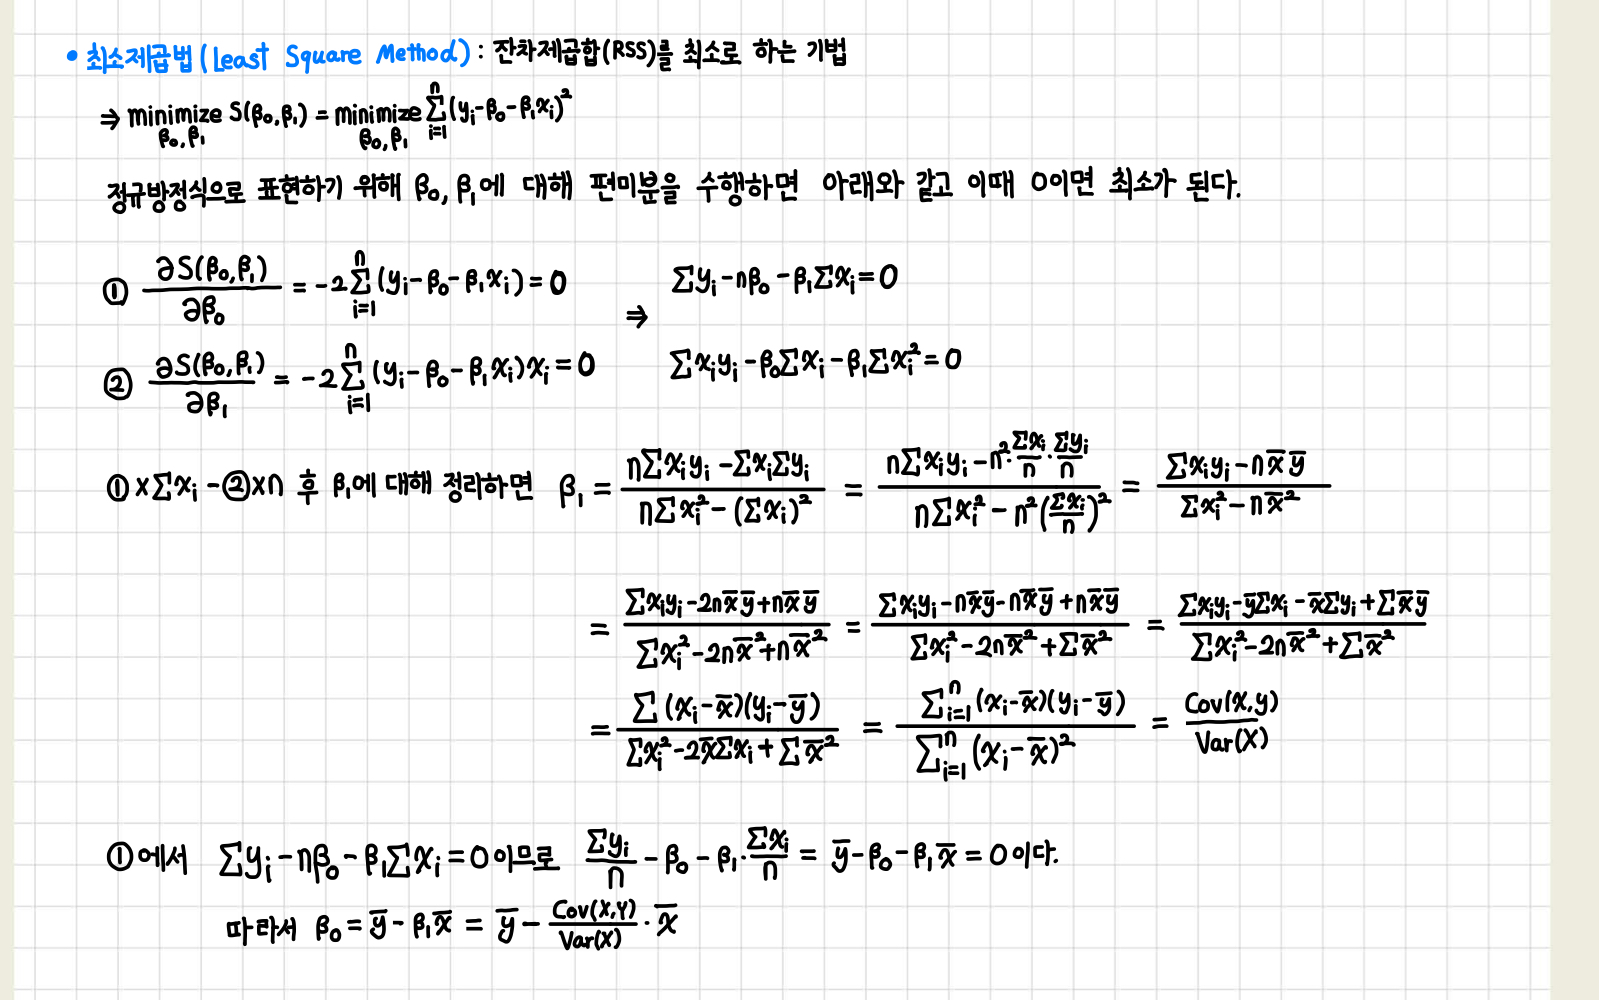 • 최소제곱법 (Least Square Method) : 잔차제곱합(RSS)를 최소로 하는 기법
⇒ minimize_{β₀,β₁} S(β₀,β₁) = minimize_{β₀,β₁} Σ_{i=1}^{n} (yᵢ-β₀-β₁xᵢ)²
정규방정식으로 표현하기 위해 β₀, β₁에 대해 편미분을 수행하면 아래와 같고 이때 0이면 최소가 된다.
① ∂S(β₀,β₁)/∂β₀ = -2 Σ_{i=1}^{n} (yᵢ-β₀-β₁xᵢ) = 0 ⇒ Σyᵢ - nβ₀ - β₁Σxᵢ = 0
② ∂S(β₀,β₁)/∂β₁ = -2 Σ_{i=1}^{n} (yᵢ-β₀-β₁xᵢ)xᵢ = 0 Σxᵢyᵢ - β₀Σxᵢ - β₁Σxᵢ² = 0
①×Σxᵢ - ②×n 후 β₁에 대해 정리하면 β₁ = (nΣxᵢyᵢ - ΣxᵢΣyᵢ)/(nΣxᵢ² - (Σxᵢ)²) = (nΣxᵢyᵢ - n²·(Σxᵢ/n)·(Σyᵢ/n))/(nΣxᵢ² - n²(Σxᵢ/n)²) = (Σxᵢyᵢ - nx̄ȳ)/(Σxᵢ² - nx̄²)
= (Σxᵢyᵢ - 2nx̄ȳ + nx̄ȳ)/(Σxᵢ² - 2nx̄² + nx̄²) = (Σxᵢyᵢ - nx̄ȳ - nx̄ȳ + nx̄ȳ)/(Σxᵢ² - 2nx̄² + Σx̄²) = (Σxᵢyᵢ - ȳΣxᵢ - x̄Σyᵢ + Σx̄ȳ)/(Σxᵢ² - 2nx̄² + Σx̄²)
= (Σ(xᵢ-x̄)(yᵢ-ȳ))/(Σxᵢ² - 2x̄Σxᵢ + Σx̄²) = (Σ_{i=1}^{n} (xᵢ-x̄)(yᵢ-ȳ))/(Σ_{i=1}^{n} (xᵢ-x̄)²) = Cov(X,y)/Var(X)
①에서 Σyᵢ - nβ₀ - β₁Σxᵢ = 0 이므로 Σyᵢ/n - β₀ - β₁·Σxᵢ/n = ȳ - β₀ - β₁x̄ = 0 이다.
따라서 β₀ = ȳ - β₁x̄ = ȳ - Cov(X,Y)/Var(X) · x̄